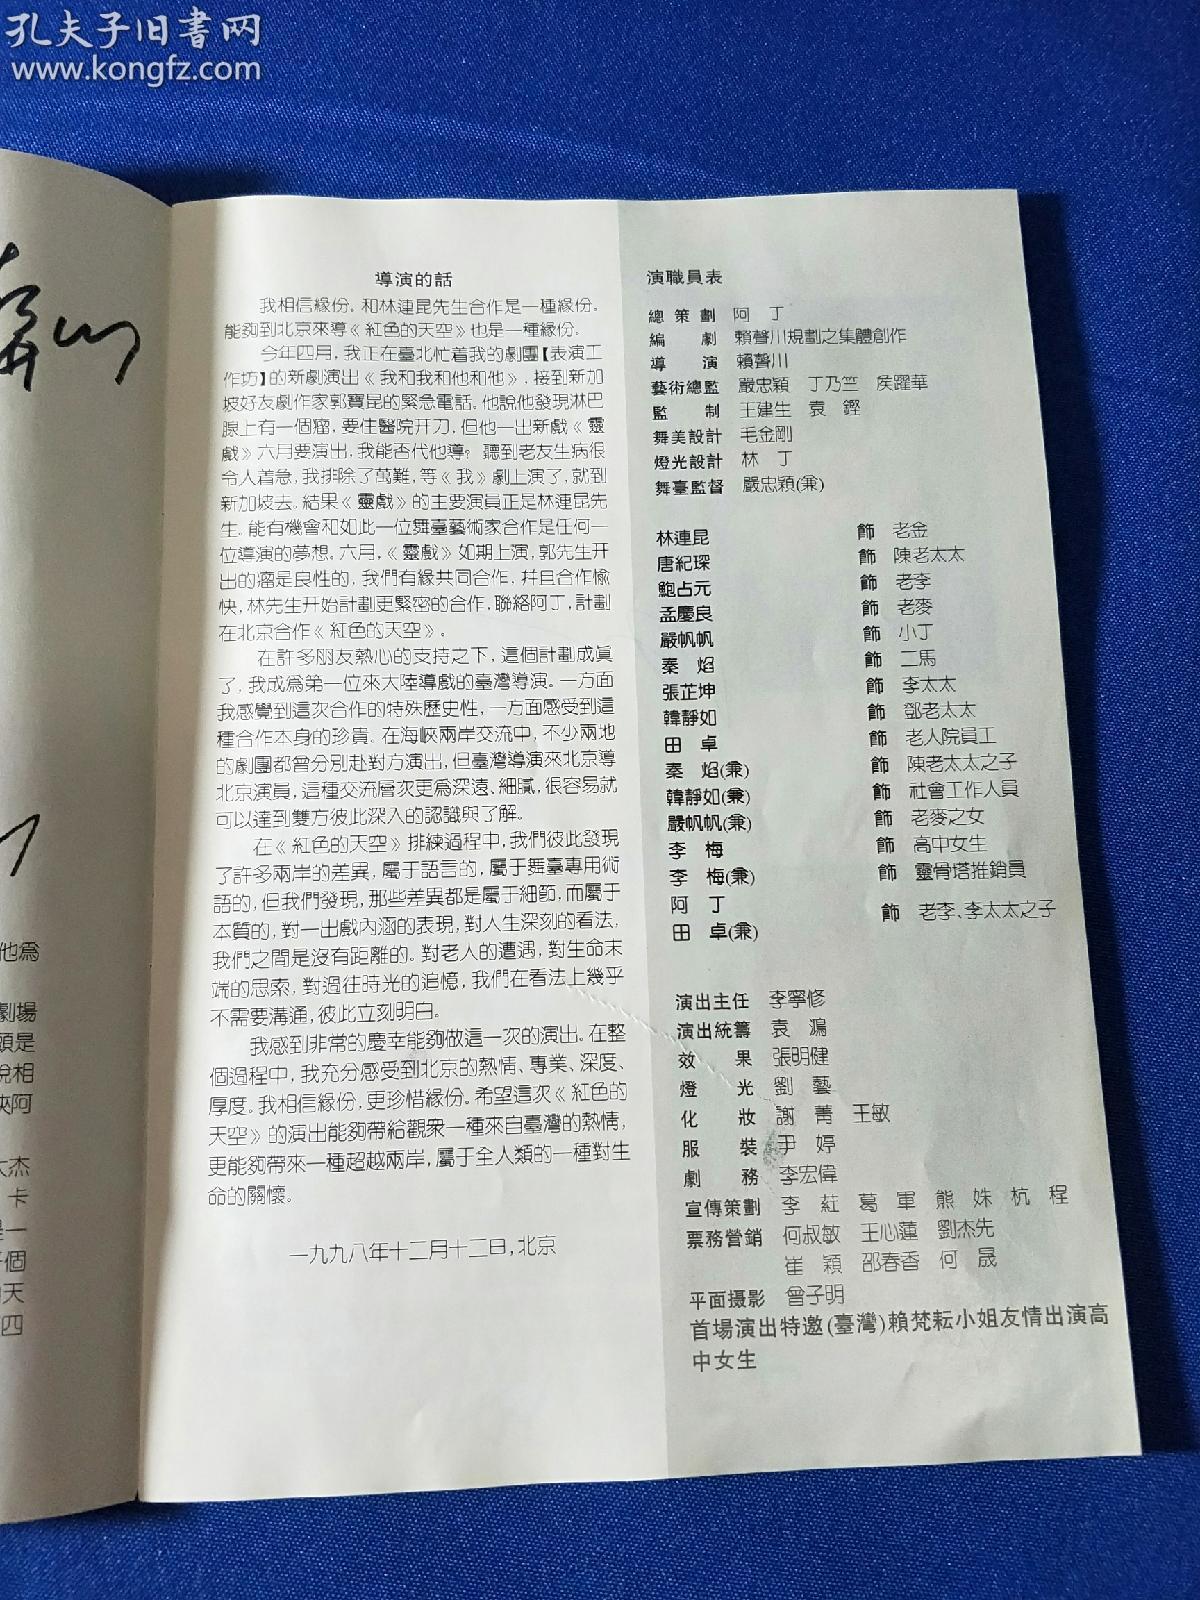 孔夫子旧書网
www.kongfz.com
導演的話
我相信緣份。和林連昆先生合作是一種緣份。
能夠到北京來導《紅色的天空》也是一種緣份。
今年四月，我正在臺北忙着我的劇團【表演工
作坊】的新劇演出《我和我和他和他》，接到新加
坡好友劇作家郭寶昆的緊急電話。他說他發現淋巴
腺上有一個瘤，要住醫院开刀，但他一出新戲《靈
戲》六月要演出，我能否代他導？聽到老友生病很
令人着急，我排除了萬難，等《我》劇上演了，就到
新加坡去。結果《靈戲》的主要演員正是林連昆先
生。能有機會和如此一位舞臺藝術家合作是任何一
位導演的夢想。六月，《靈戲》如期上演，郭先生开
出的瘤是良性的，我們有緣共同合作，并且合作愉
快，林先生开始計劃更緊密的合作，聯絡阿丁，計劃
在北京合作《紅色的天空》。
在許多朋友熱心的支持之下，這個計劃成真
了，我成爲第一位來大陸導戲的臺灣導演。一方面
我感覺到這次合作的特殊歷史性，一方面感受到這
種合作本身的珍貴。在海峽兩岸交流中，不少兩地
的劇團都曾分別赴對方演出，但臺灣導演來北京導
北京演員，這種交流層次更爲深遠、細膩，很容易就
可以達到雙方彼此深入的認識與了解。
在《紅色的天空》排練過程中，我們彼此發現
了許多兩岸的差異，屬于語言的，屬于舞臺專用術
語的，但我們發現，那些差異都是屬于細節，而屬于
本質的，對一出戲內涵的表現，對人生深刻的看法，
我們之間是沒有距離的。對老人的遭遇，對生命末
端的思索，對過往時光的追憶，我們在看法上幾乎
不需要溝通，彼此立刻明白。
我感到非常的慶幸能夠做這一次的演出。在整
個過程中，我充分感受到北京的熱情、專業、深度、
厚度。我相信緣份，更珍惜緣份。希望這次《紅色的
天空》的演出能夠帶給觀衆一種來自臺灣的熱情，
更能夠帶來一種超越兩岸，屬于全人類的一種對生
命的關懷。
一九九八年十二月十二日，北京
演職員表
總策劃 阿丁
編劇 賴聲川規劃之集體創作
導演 賴聲川
藝術總監 嚴忠穎 丁乃竺 侯躍華
監制 王建生 袁鏗
舞美設計 毛金剛
燈光設計 林丁
舞臺監督 嚴忠穎(兼)
林連昆 飾 老金
唐紀琛 飾 陳老太太
鮑占元 飾 老李
孟慶良 飾 老麥
嚴帆帆 飾 小丁
秦焰 飾 二馬
張芷坤 飾 李太太
韓靜如 飾 鄧老太太
田卓 飾 老人院員工
秦焰(兼) 飾 陳老太太之子
韓靜如(兼) 飾 社會工作人員
嚴帆帆(兼) 飾 老麥之女
李梅 飾 高中女生
李梅(兼) 飾 靈骨塔推銷員
阿丁
田卓(兼) 飾 老李、李太太之子
演出主任 李寧修
演出統籌 袁鴻
效果 張明健
燈光 劉藝
化妝 謝菁 王敏
服裝 尹婷
劇務 李宏偉
宣傳策劃 李紅 葛軍 熊姝 杭程
票務營銷 何叔敏 王心蓮 劉杰先
崔穎 邵春香 何晟
平面摄影 曾子明
首場演出特邀(臺灣)賴梵耘小姐友情出演高
中女生
他爲
劇場
頭是
說相
阿
大杰
卡
是一
個
天
四